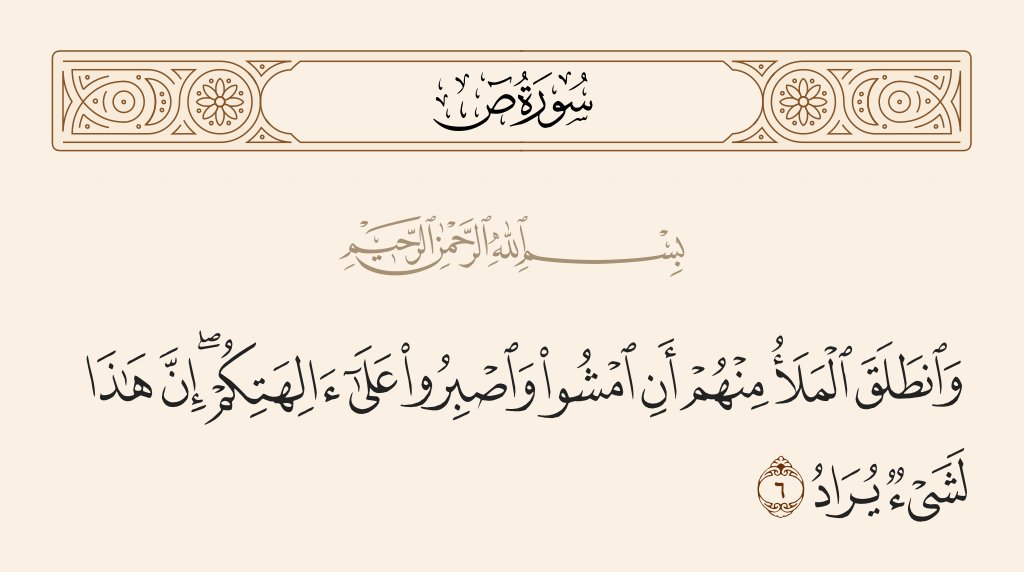 سُورَةُ صٓ
بِسْمِ ٱللَّهِ ٱلرَّحْمَٰنِ ٱلرَّحِيمِ
وَٱنطَلَقَ ٱلْمَلَأُ مِنْهُمْ أَنِ ٱمْشُوا۟ وَٱصْبِرُوا۟ عَلَىٰٓ ءَالِهَتِكُمْ ۖ إِنَّ هَـٰذَا
لَشَىْءٌ يُرَادُ ٦